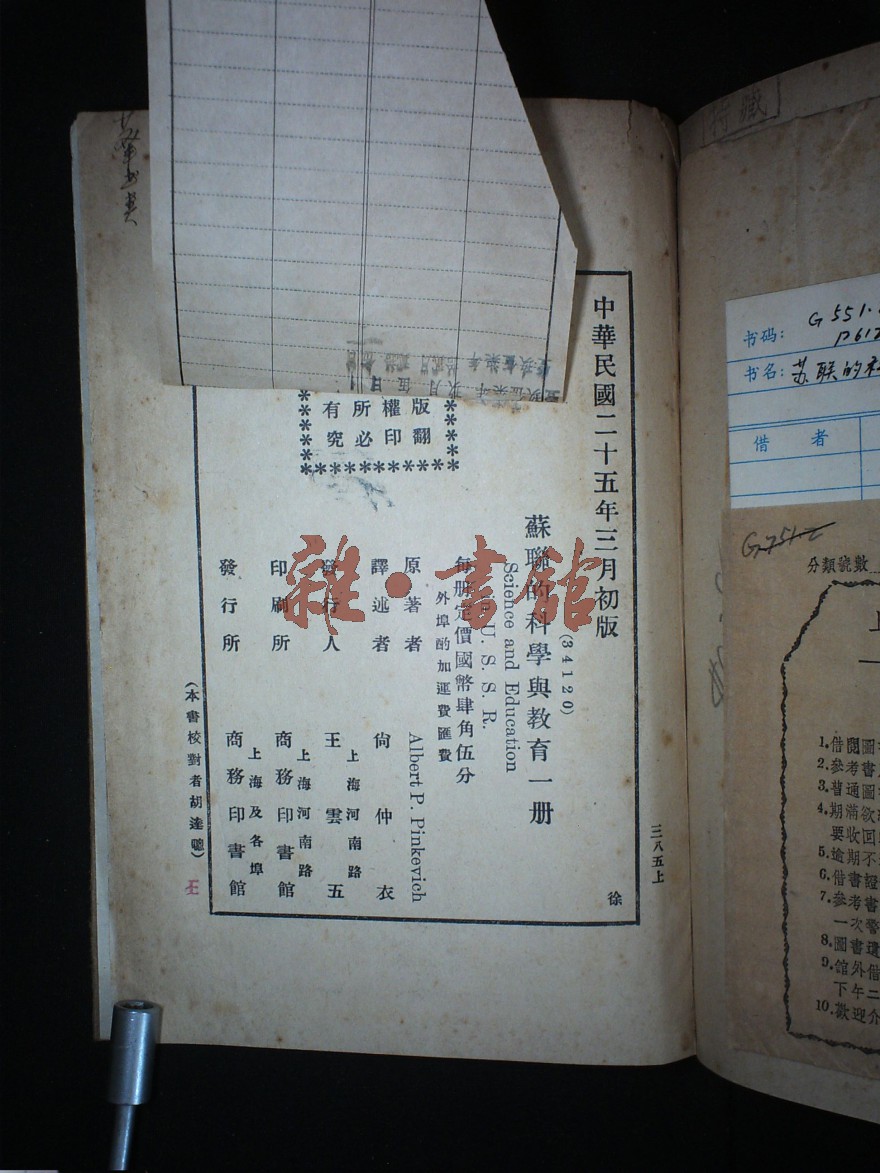 中華民國二十五年三月初版
(34120)
蘇聯的科學與教育一册
Science and Education
U. S. S. R.
每册定價國幣肆角伍分
外埠酌加運費匯費
版權所有
翻印必究
原著者 Albert P. Pinkevich
譯述者 尙仲衣
發行人 王雲五
上海河南路
印刷所 商務印書館
上海河南路
發行所 商務印書館
上海及各埠
(本書校對者胡達聰)
王
三八五上
徐
雜·書館
特藏
书码: G551.
P612
书名: 苏联的科
借者
G751-2
分類號數
1.借閱圖
2.參考書
3.普通圖
4.期滿欲
要收回
5.逾期不
6.借書證
7.參考書
一次警
8.圖書遺
9.館外借
下午二
10.歡迎介